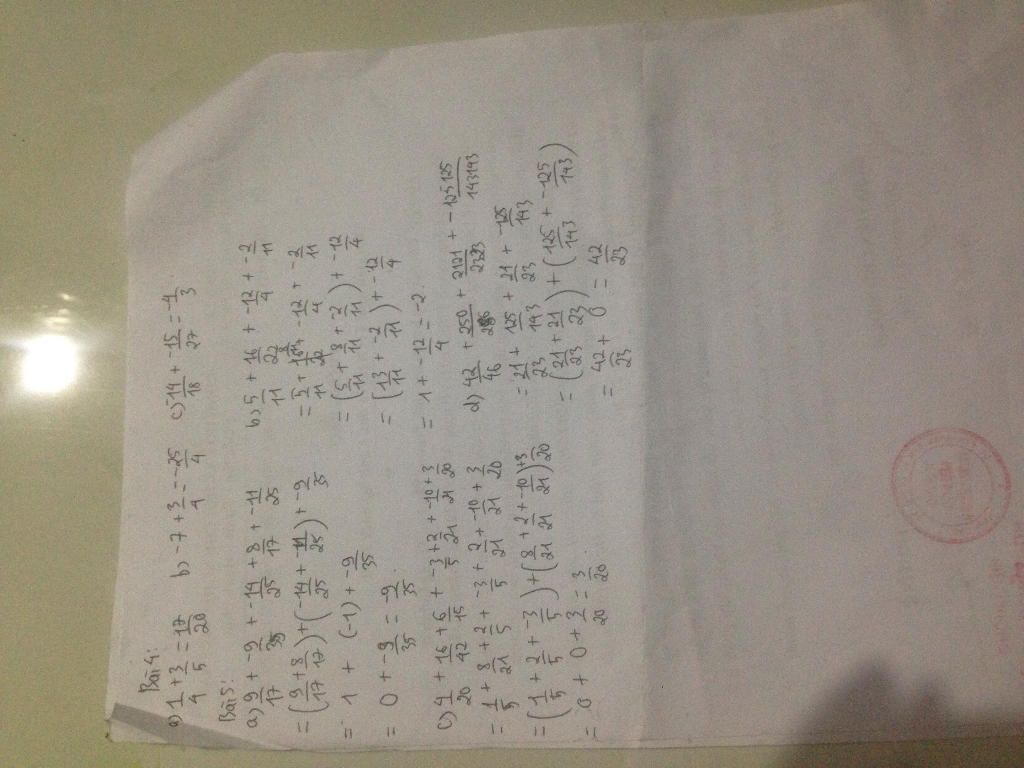 Bài 4:
a) 1/4 + 3/5 = 17/20 b) -7 + 3/4 = -25/4 c) 14/18 + -15/27 = -1/3
Bài 5:
a) 9/17 + -9/35 + -14/25 + 8/17 + -11/25
= (9/17 + 8/17) + (-14/25 + -11/25) + -9/35
= 1 + (-1) + -9/35
= 0 + -9/35 = -9/35
b) 5/11 + 16/22 + -12/4 + -2/11
= 5/11 + -12/4 + -2/11
= (5/11 + 8/11 + -2/11) + -12/4
= (13/11 + -2/11) + -12/4
= 1 + -12/4 = -2
c) 4/20 + 16/42 + 6/15 + -3/5 + 2/21 + -10/21 + 3/20
= 1/5 + 8/21 + 2/5 + -3/5 + 2/21 + -10/21 + 3/20
= (1/5 + 2/5 + -3/5) + (8/21 + 2/21 + -10/21) + 3/20
= 0 + 0 + 3/20 = 3/20
d) 42/46 + 250/286 + 2121/2323 + -125125/143143
= 21/23 + 125/143 + 21/23 + -125/143
= (21/23 + 21/23) + (125/143 + -125/143)
= 42/23 + 0 = 42/23